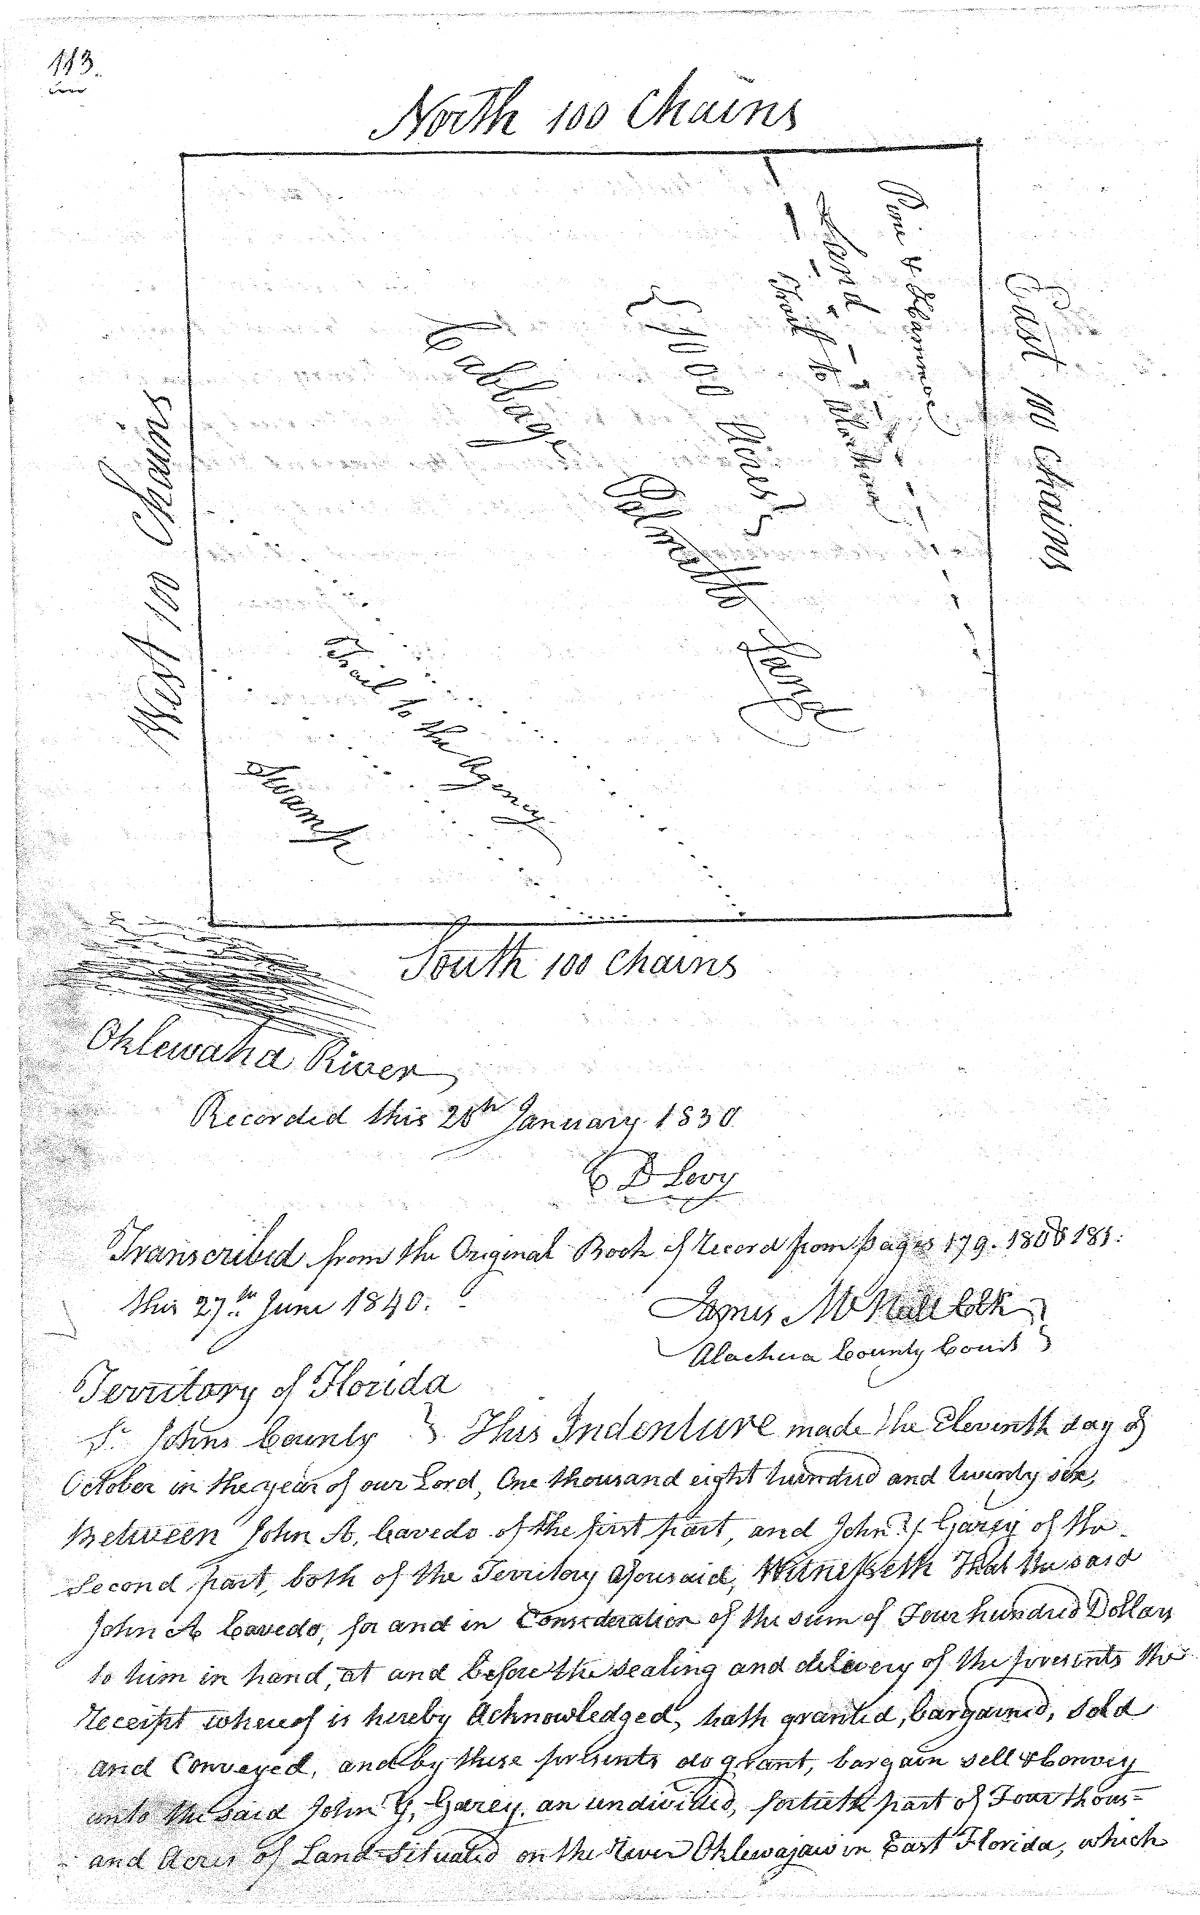 113.
North 100 Chains
Pine & Hammoc
Land
Trail to Alachua
{1000 Acres}
Cabbage Palmetto Land
East 100 Chains
West 100 Chains
Trail to the Agency
Swamp
South 100 Chains
Oklewaha River
Recorded this 28th January 1830
C D Levy
Transcribed from the Original Book of Record from pages 179. 180 & 181.
this 27th June 1840.
James McNeill Clk
Alachua County Court
Territory of Florida
St Johns County } This Indenture made the Eleventh day of
October in the year of our Lord, One thousand eight hundred and twenty six,
Between John A. Cavedo of the first part, and John Y. Garey of the
Second part, both of the Territory aforesaid, Witnesseth That the said
John A Cavedo, for and in Consideration of the sum of Four hundred Dollars
to him in hand, at and before the sealing and delivery of the presents the
receipt whereof is hereby Acknowledged, hath granted, bargained, sold
and Conveyed, and by these presents do grant, bargain sell & Convey
unto the said John Y, Garey, an undivided, fortieth part of Four thous=
and Acres of Land Situated on the River Oklewajaw in East Florida, which